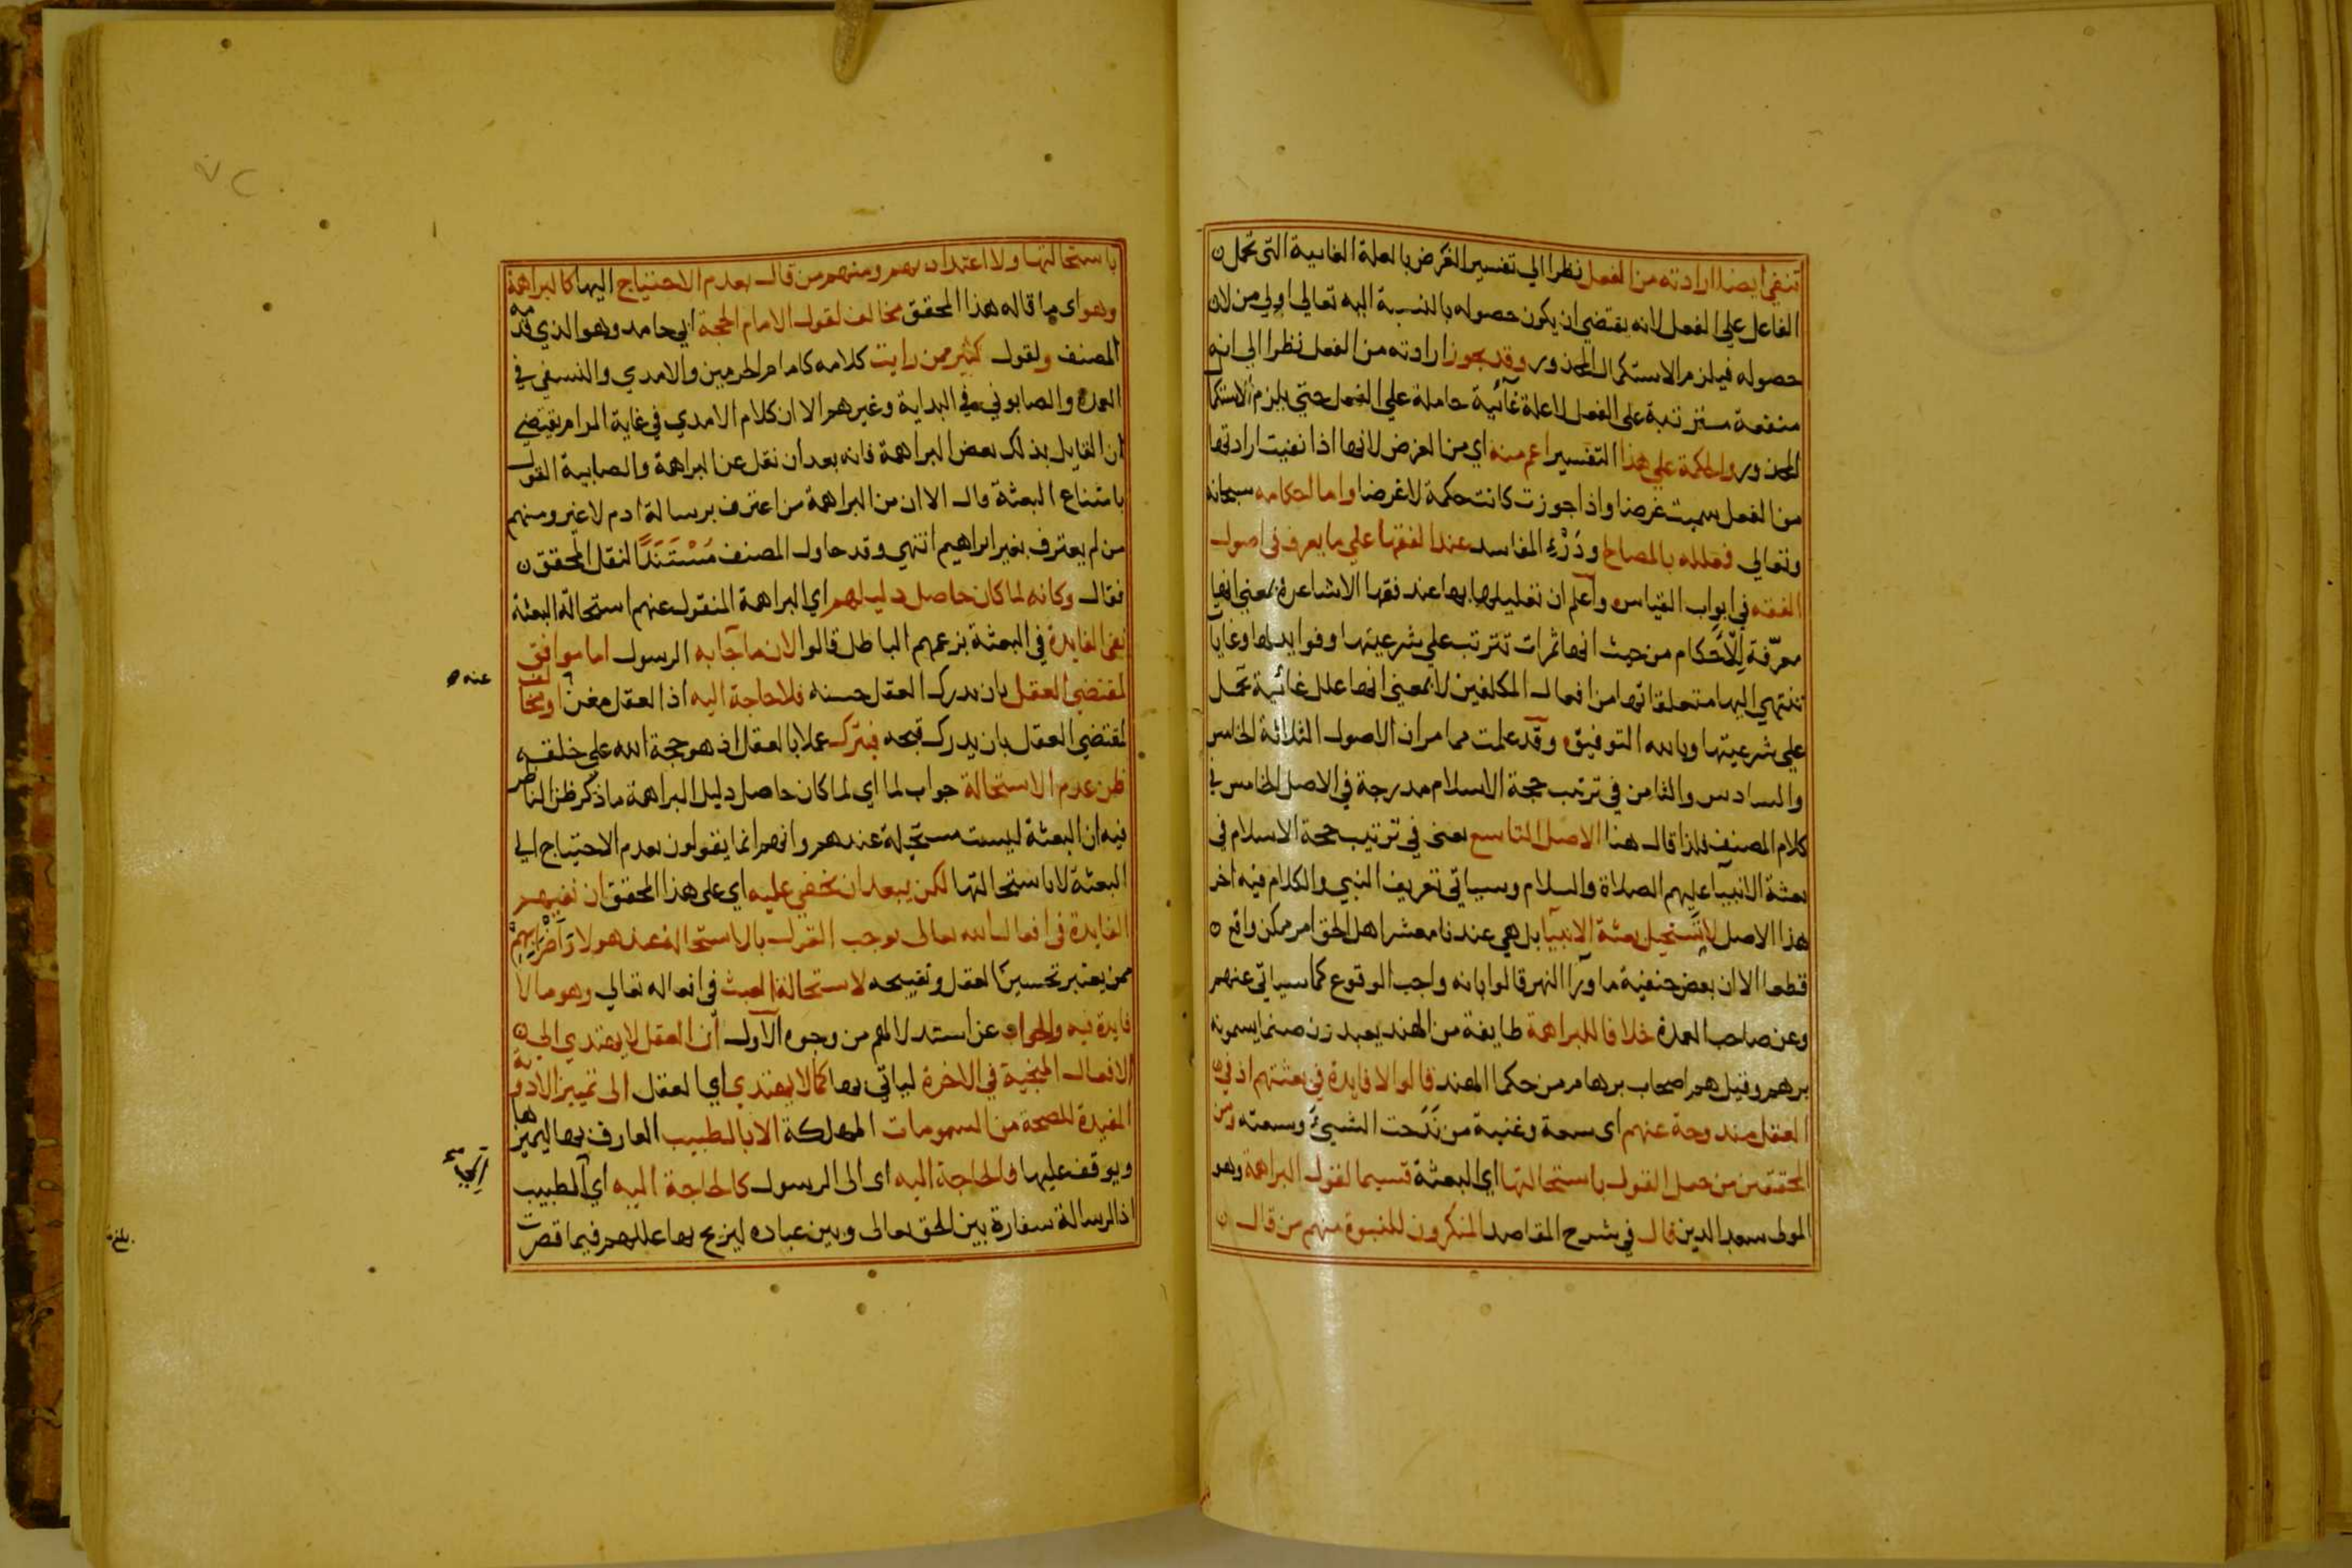 تنفى ايضا ارادته من الفعل نظرا الي تفسير الغرض بالعلة الغايية التي تحمل
الفاعل علي الفعل لانه يقتضي ان يكون حصوله بالنسبة اليه تعالي اولي من لان
حصوله فيلزم الاستكمال المحذور وقد يجوز ارادته من الفعل نظرا الي انه
منفعة مترتبة على الفعل لا علة غائية حاملة علي الفعل حتي يلزم الاستكما
المحذور والحكمة علي هذا التفسير اعم منه اي من الغرض لانها اذا نفيت ارادتها
من الفعل سميت غرضا واذا جوزت كانت حكمة لا غرضا واما احكامه سبحانه
وتعالي فمعللة بالمصالح ودَرْءِ المفاسد عند الفقها علي ما يعرف في اصول
الفقه في ابواب القياس واعلم ان تعليلها بها عند فقها الاشاعرة بمعني انها
معرّفة للاَحكام من حيث انها ثمرات تترتب علي شرعيتها وفوايد لها وغايا
تنتهي اليها متعلقاتها من افعال المكلفين لا بمعني انها علل غائية تحمل
علي شرعيتها وبالله التوفيق وقد علمت مما مر ان الاصول الثلاثة الخامس
والسادس والثامن في ترتيب حجة الاسلام مدرجة في الاصل الخامس في
كلام المصنف فلذا قال هنا الاصل التاسع يعنى في ترتيب حجة الاسلام في
بعثة الانبيا عليهم الصلاة والسلام وسياتي تعريف النبي والكلام فيه اخر
هذا الاصل لا تستحيل بعثة الانبيا بل هي عندنا معشر اهل الحق امر ممكن واقع
قطعا الا ان بعض حنفية ما ورآ النهر قالوا بانه واجب الوقوع كما سياتي عنهم
وعن صاحب العمدة خلافا للبراهمة طايفة من الهند يعبدون صنما يسمونه
برهم وقيل هم اصحاب برهام من حكما الهند قالوا لا فايدة في بعثتهم اذ في
العقل مندوحة عنهم اى سعة وغنية من نَدَحت الشيئَ وسعته ومن
المحققين من حمل القول باستحالتها اي البعثة قسيما لقول البراهمة وهو
المولى سعد الدين قال في شرح المقاصد المنكرون للنبوة منهم من قال
باستحالتها ولا اعتداد بهم ومنهم من قال بعدم الاحتياج اليها كالبراهمة
وهو اى ما قاله هذا المحقق مخالف لقول الامام الحجة ابي حامد وهو الذي قدمه
المصنف ولقول كثير ممن رايت كلامه كامام الحرمين والامدي والنسفي في
العمدة والصابوني في البداية وغيرهم الا ان كلام الامدي في غاية المرام يقتضي
ان القايل بذلك بعض البراهمة فانه بعد ان نقل عن البراهمة والصابية القول
بامتناع البعثة قال الا ان من البراهمة من اعترف برسالة ادم لا غير ومنهم
من لم يعترف بغير ابراهيم انتهي وقد حاول المصنف مُسْتَنَدًا لنقل المحقق
فقال وكانه لما كان حاصل دليلهم اي البراهمة المنقول عنهم استحالة البعثة
نفي الفايدة في البعثة بزعمهم الباطل قالوا لان ما جآ به الرسول اما موافق
لمقتضي العقل بان يدرك العقل حسنه فلا حاجة اليه اذ العقل مغن او مخالف
عنه
لمقتضي العقل بان يدرك قبحه فيترك عملا بالعقل اذ هو حجة الله علي خلقه
ظن عدم الاستحالة جواب لما اي لما كان حاصل دليل البراهمة ما ذكر ظن الناظر
فيه ان البعثة ليست مستحيلة عندهم وانهم انما يقولون بعدم الاحتياج الي
البعثة لا باستحالتها لكن يبعد ان يخفي عليه اي على هذا المحقق ان نفيهم
الفايدة في افعال الله تعالى توجب القول بالاستحالة عند هولاء وَاضرَابهم
ممن يعتبر تحسين العقل وتقبيحه لاستحالة العبث في افعاله تعالي وهو ما لا
فايدة فيه والجواب عن استدلالهم من وجوه الاول ان العقل لا يهتدي الي
الافعال المنجية في الاخرة لياتي بها كما لا يهتدي اي العقل الى تمييز الادوية
المفيدة للصحة من السمومات المهلكة الا بالطبيب العارف بها ليميزها
ويوقف عليها فالحاجة اليه اى الى الرسول كالحاجة اليه اي الطبيب
اذ الرسالة سفارة بين الحق تعالى وبين عباده ليزيح بها عللهم فيما قصرت